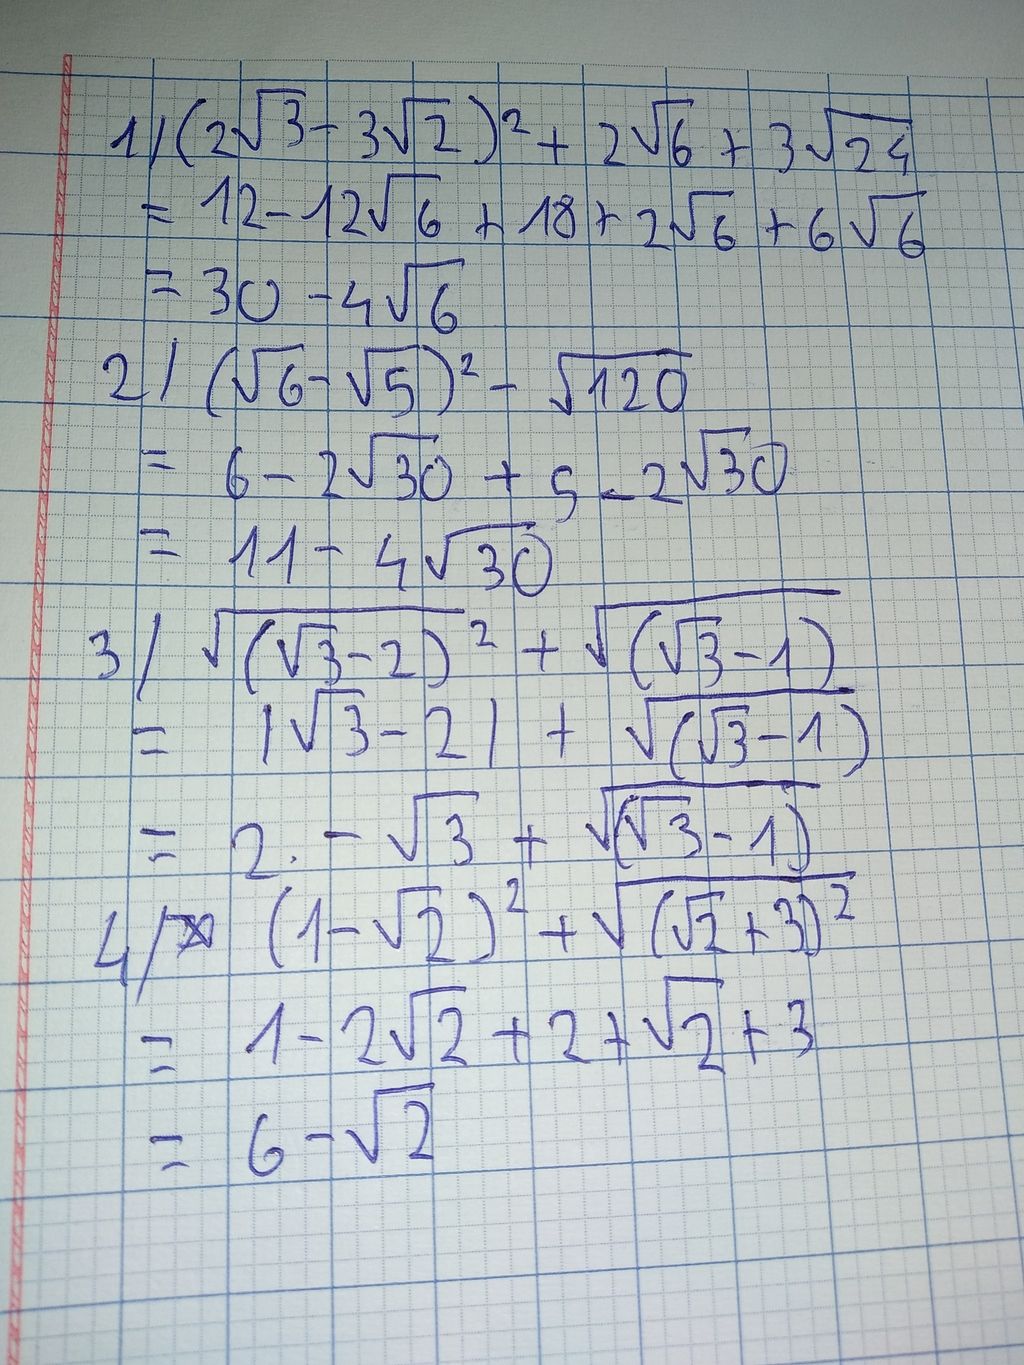 1/ (2√3 - 3√2)² + 2√6 + 3√24
= 12 - 12√6 + 18 + 2√6 + 6√6
= 30 - 4√6
2/ (√6 - √5)² - √120
= 6 - 2√30 + 5 - 2√30
= 11 - 4√30
3/ √(√3 - 2)² + √(√3 - 1)
= |√3 - 2| + √(√3 - 1)
= 2. - √3 + √(√3 - 1)
4/ (1 - √2)² + √(√2 + 3)²
= 1 - 2√2 + 2 + √2 + 3
= 6 - √2